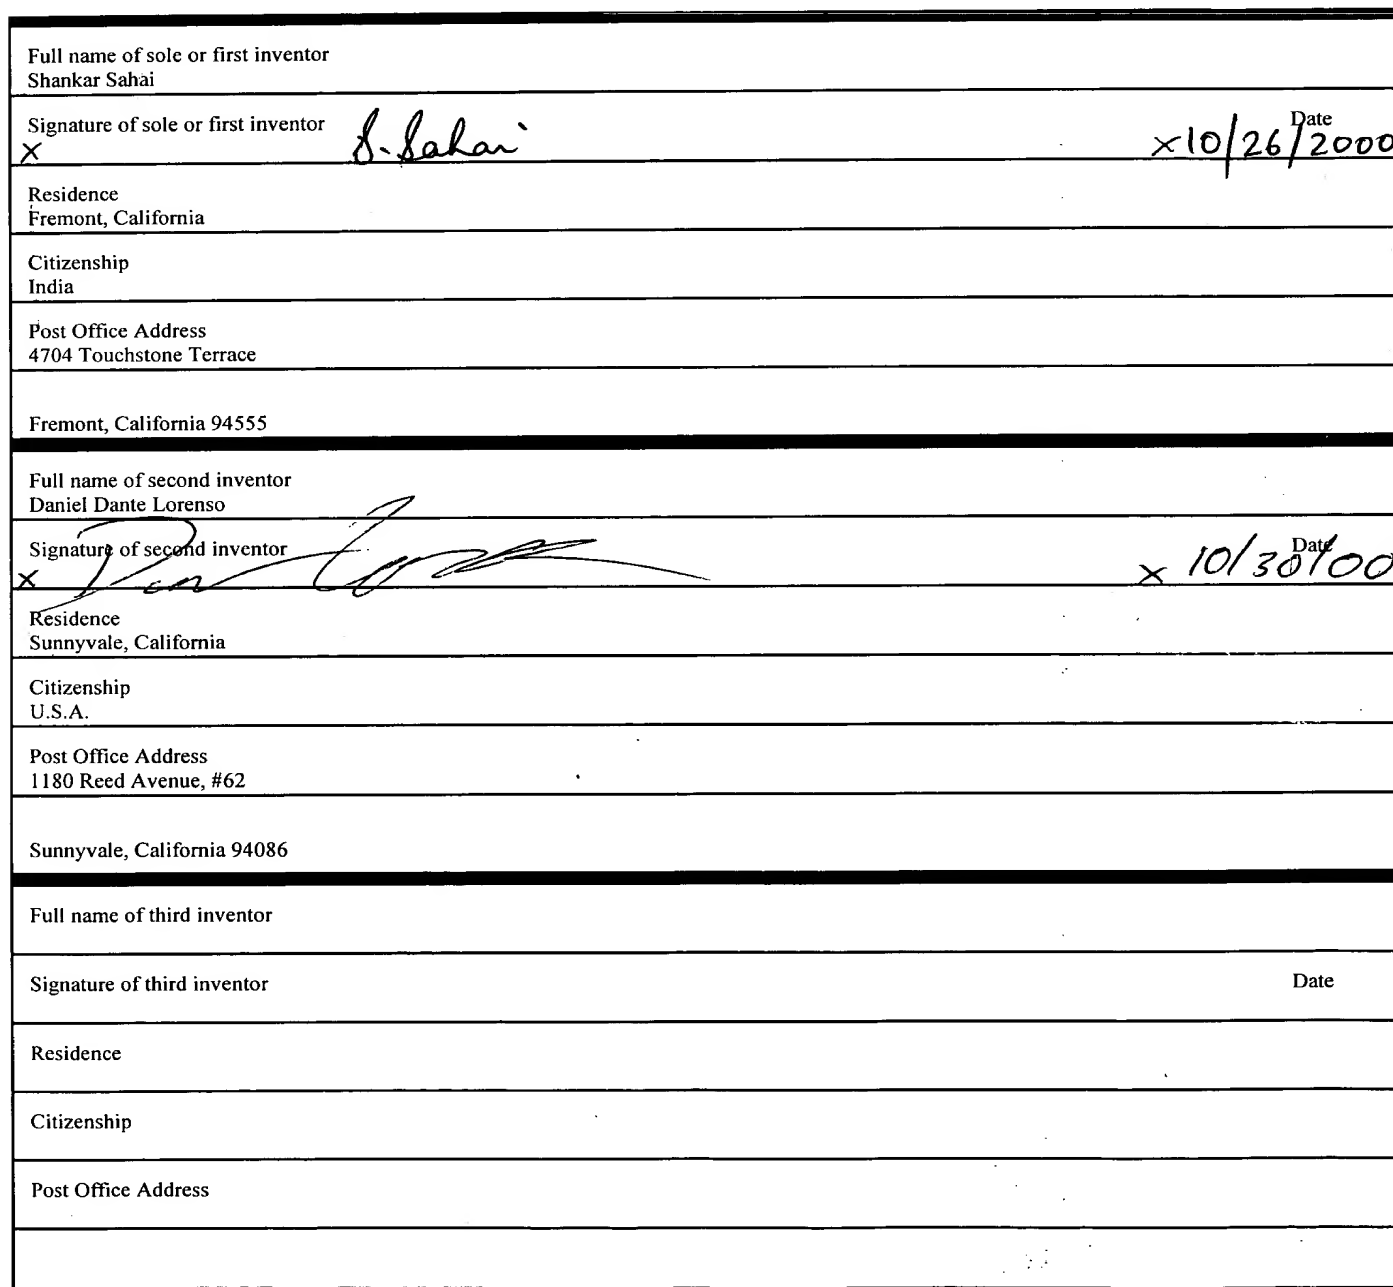 Full name of sole or first inventor
Shankar Sahai
Signature of sole or first inventor S. Sahai Date
X x 10/26/2000
Residence
Fremont, California
Citizenship
India
Post Office Address
4704 Touchstone Terrace
Fremont, California 94555
Full name of second inventor
Daniel Dante Lorenso
Signature of second inventor Date
X x 10/30/00
Residence
Sunnyvale, California
Citizenship
U.S.A.
Post Office Address
1180 Reed Avenue, #62
Sunnyvale, California 94086
Full name of third inventor
Signature of third inventor Date
Residence
Citizenship
Post Office Address